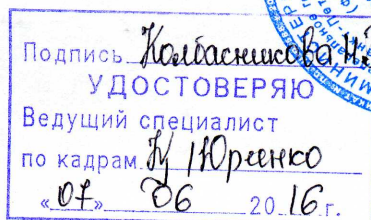 Подпись Колбасникова Н.
УДОСТОВЕРЯЮ
Ведущий специалист
по кадрам Юрченко
«07» 06 2016 г.